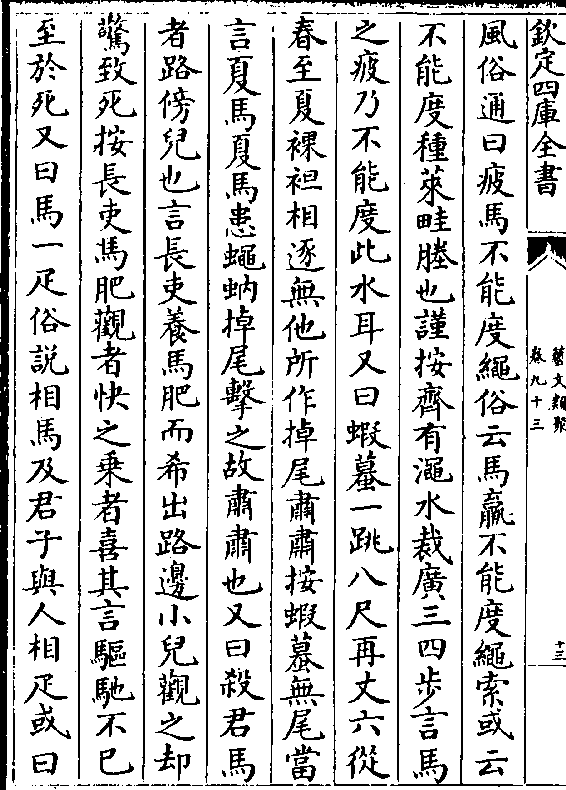 欽定四庫全書
藝文類聚
卷九十三
十三
風俗通曰疲馬不能度繩俗云馬羸不能度繩索或云
不能度種萊畦塍也謹按齊有澠水裁廣三四步言馬
之疲乃不能度此水耳又曰蝦蟇一跳八尺再丈六從
春至夏裸袒相逐無他所作掉尾肅肅按蝦蟇無尾當
言夏馬夏馬患蠅蚋掉尾擊之故肅肅也又曰殺君馬
者路傍兒也言長吏養馬肥而希出路邊小兒觀之却
驚致死按長吏馬肥觀者快之乗者喜其言驅馳不已
至於死又曰馬一疋俗說相馬及君子與人相疋或曰